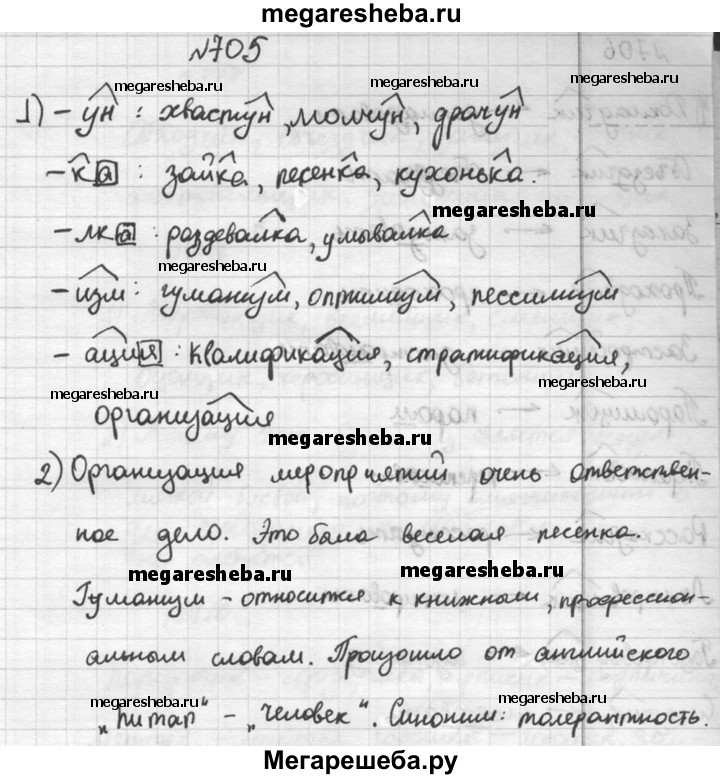 megaresheba.ru
№705
megaresheba.ru megaresheba.ru
1) - ун : хвастун, молчун, драчун
- ка : зайка, песенка, кухонька.
megaresheba.ru
- лка : раздевалка, умывалка
megaresheba.ru
- изм : гуманизм, оптимизм, пессимизм
megaresheba.ru
- ация : квалификация, стратификация,
megaresheba.ru
megaresheba.ru
организация
megaresheba.ru
2) Организация мероприятий очень ответствен-
ное дело. Это была веселая песенка.
megaresheba.ru megaresheba.ru
Гуманизм - относится к книжным, профессион-
альным словам. Произошло от английского
megaresheba.ru megaresheba.ru
„human" - „человек". Синоним: толерантность.
Мегарешеба.ру